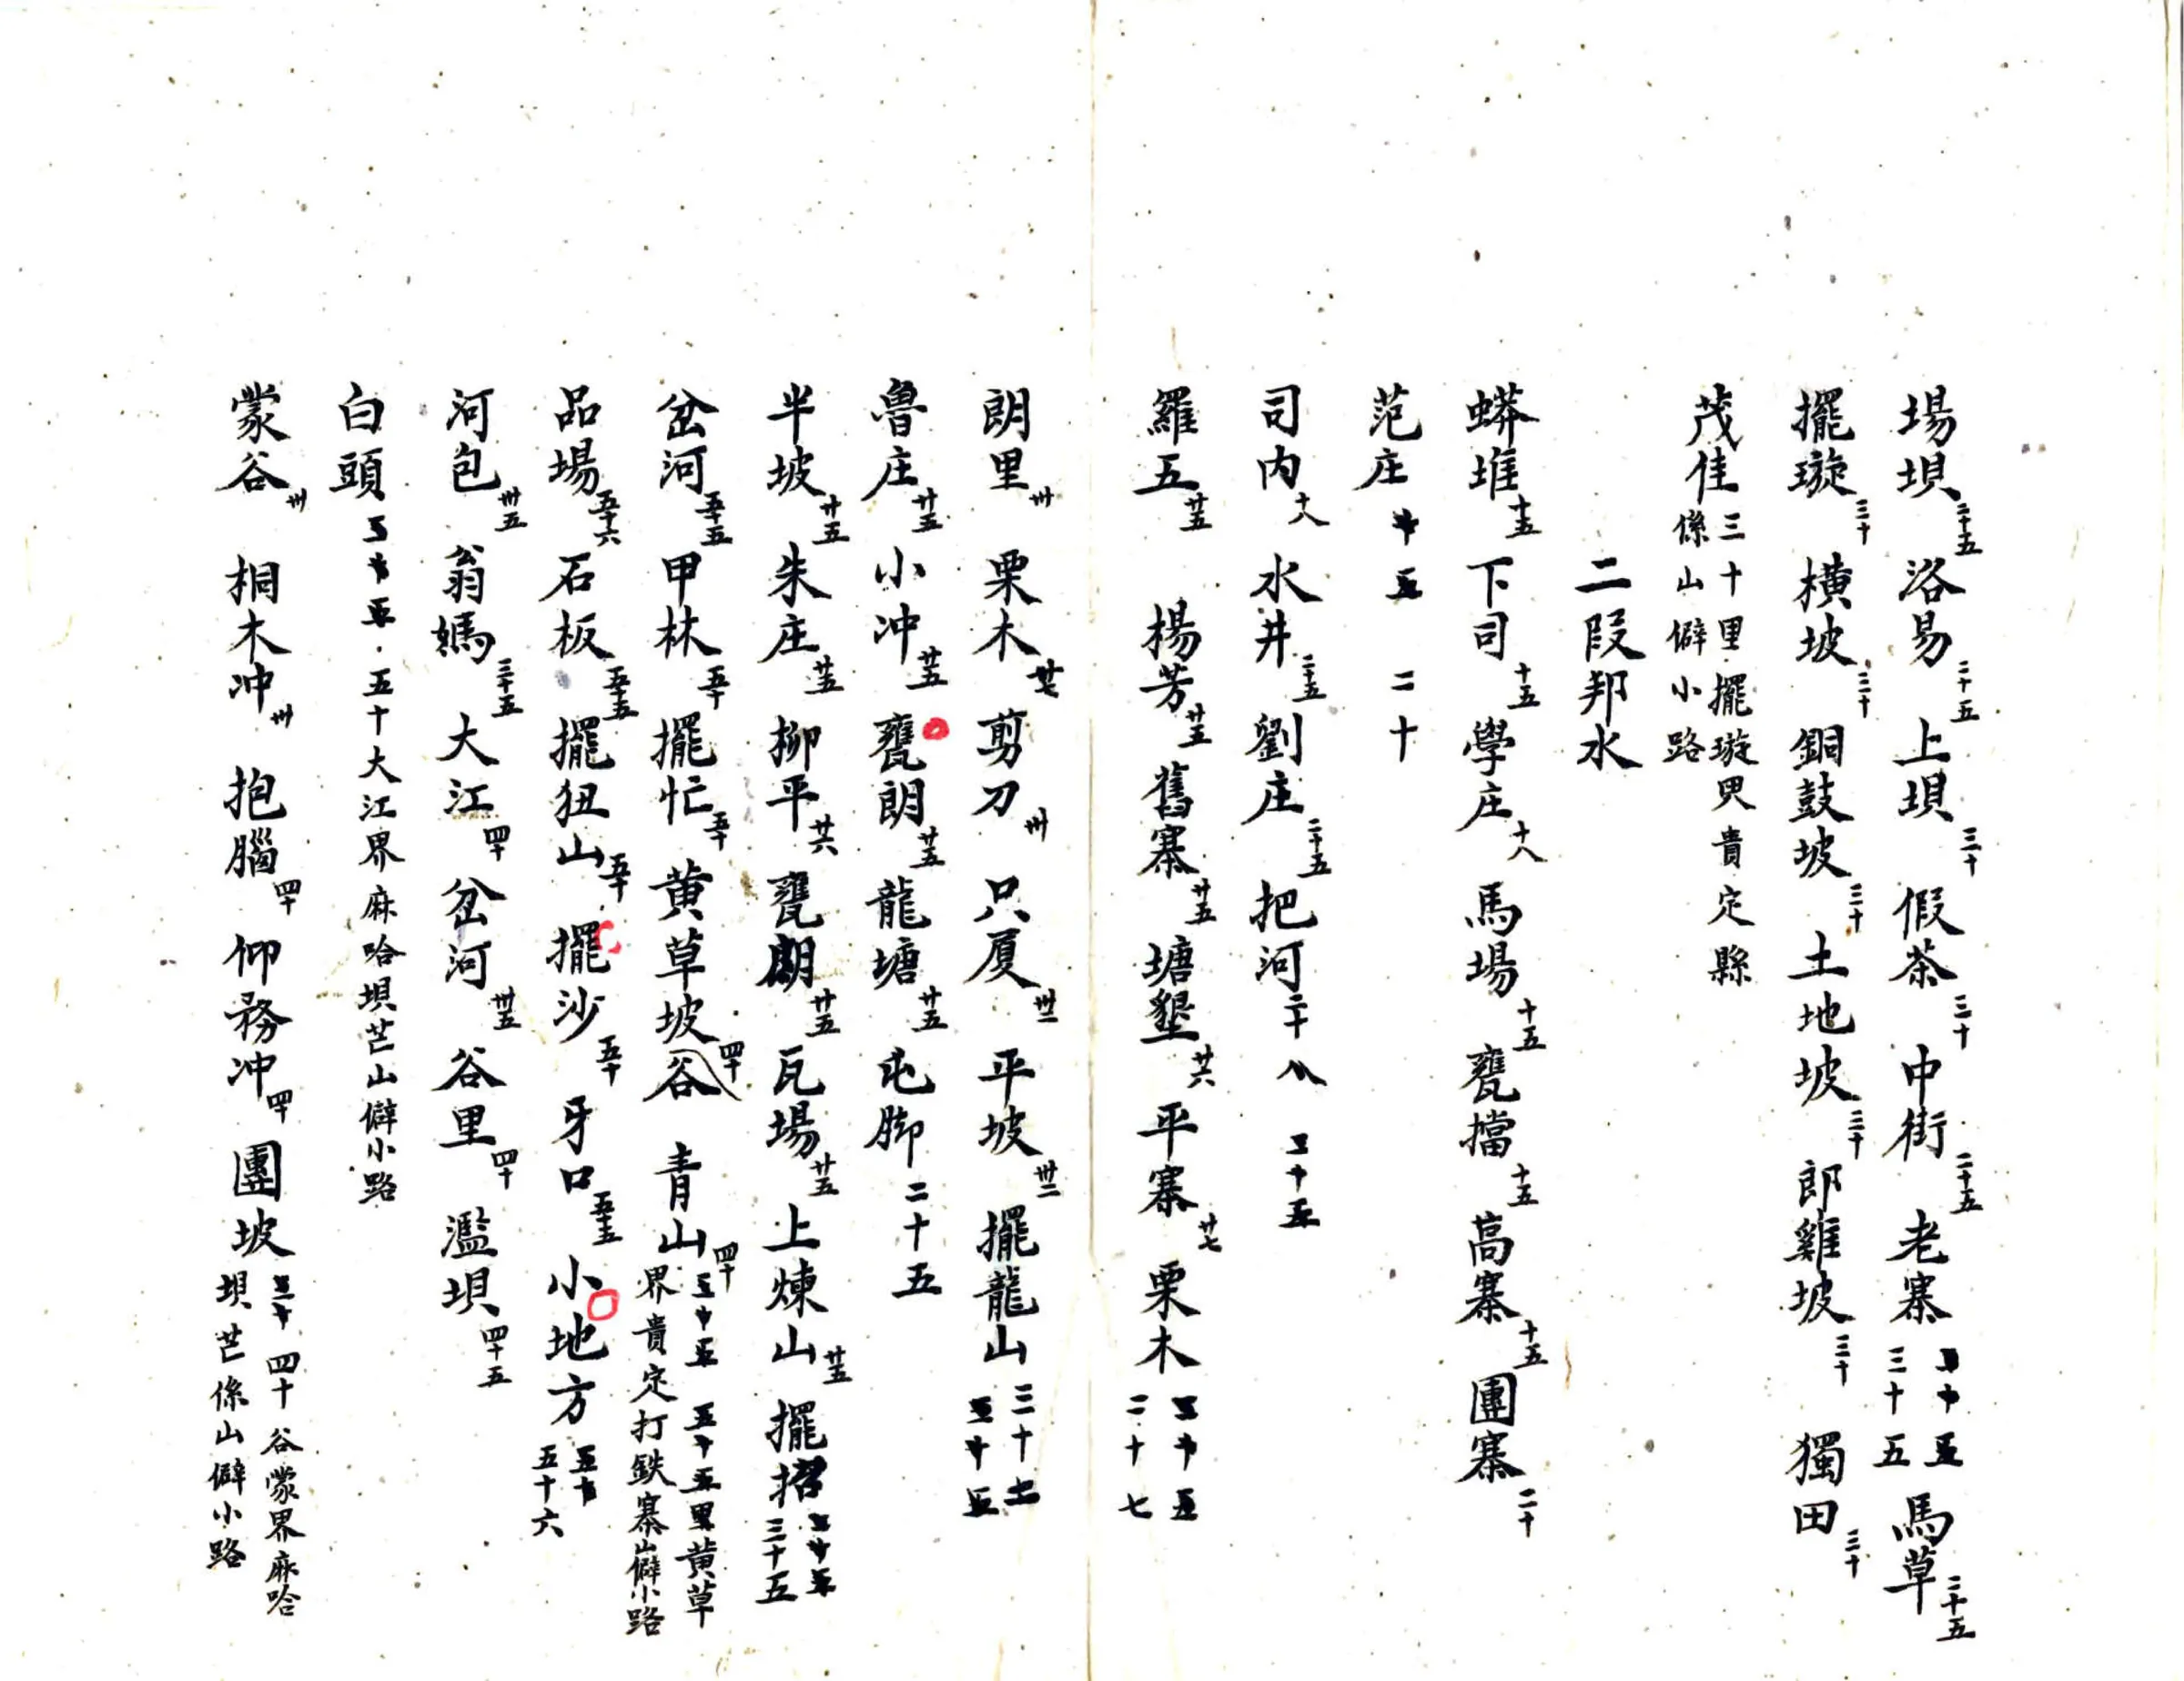 場垻二十五 洛易三十五 上垻三十 假茶三十 中街二十五 老寨三十五 馬草二十五
擺璇三十 横坡三十 銅鼓坡三十 土地坡三十 郎雞坡三十 獨田三十
茂佳三十里擺璇界貴定縣係山僻小路
二段邦水
蟒堆十五 下司十五 學庄十八 馬場十五 甕擋十五 高寨十五 團寨二十
范庄 二十
司内十八 水井二十五 劉庄二十五 把河二十八
羅五廿五 楊芳廿五 舊寨廿五 塘墾廿六 平寨廿七 栗木二十七
朗里卅 栗木廿七 剪刀卅 只厦卅二 平坡卅二 擺龍山三十七
魯庄廿五 小冲廿五 甕朗廿五 龍塘廿五 屯脚二十五
半坡廿五 朱庄廿五 柳平廿六 甕朗廿五 瓦場廿五 上煉山廿五 擺招三十五
岔河五十五 甲林五十 擺忙五十 黄草坡四十 谷 青山四十 五十五里黄草界貴定打鉄寨山僻小路
品場五十六 石板五十五 擺狃山五十 擺沙五十 牙口五十五 小地方五十六
河包卅五 翁媽三十五 大江四十 岔河卅五 谷里四十 濫垻四十五
白頭 五十大江界麻哈垻芒山僻小路
蒙谷卅 桐木冲卅 抱腦四十 仰務冲四十 團坡 四十谷蒙界麻哈垻芒係山僻小路